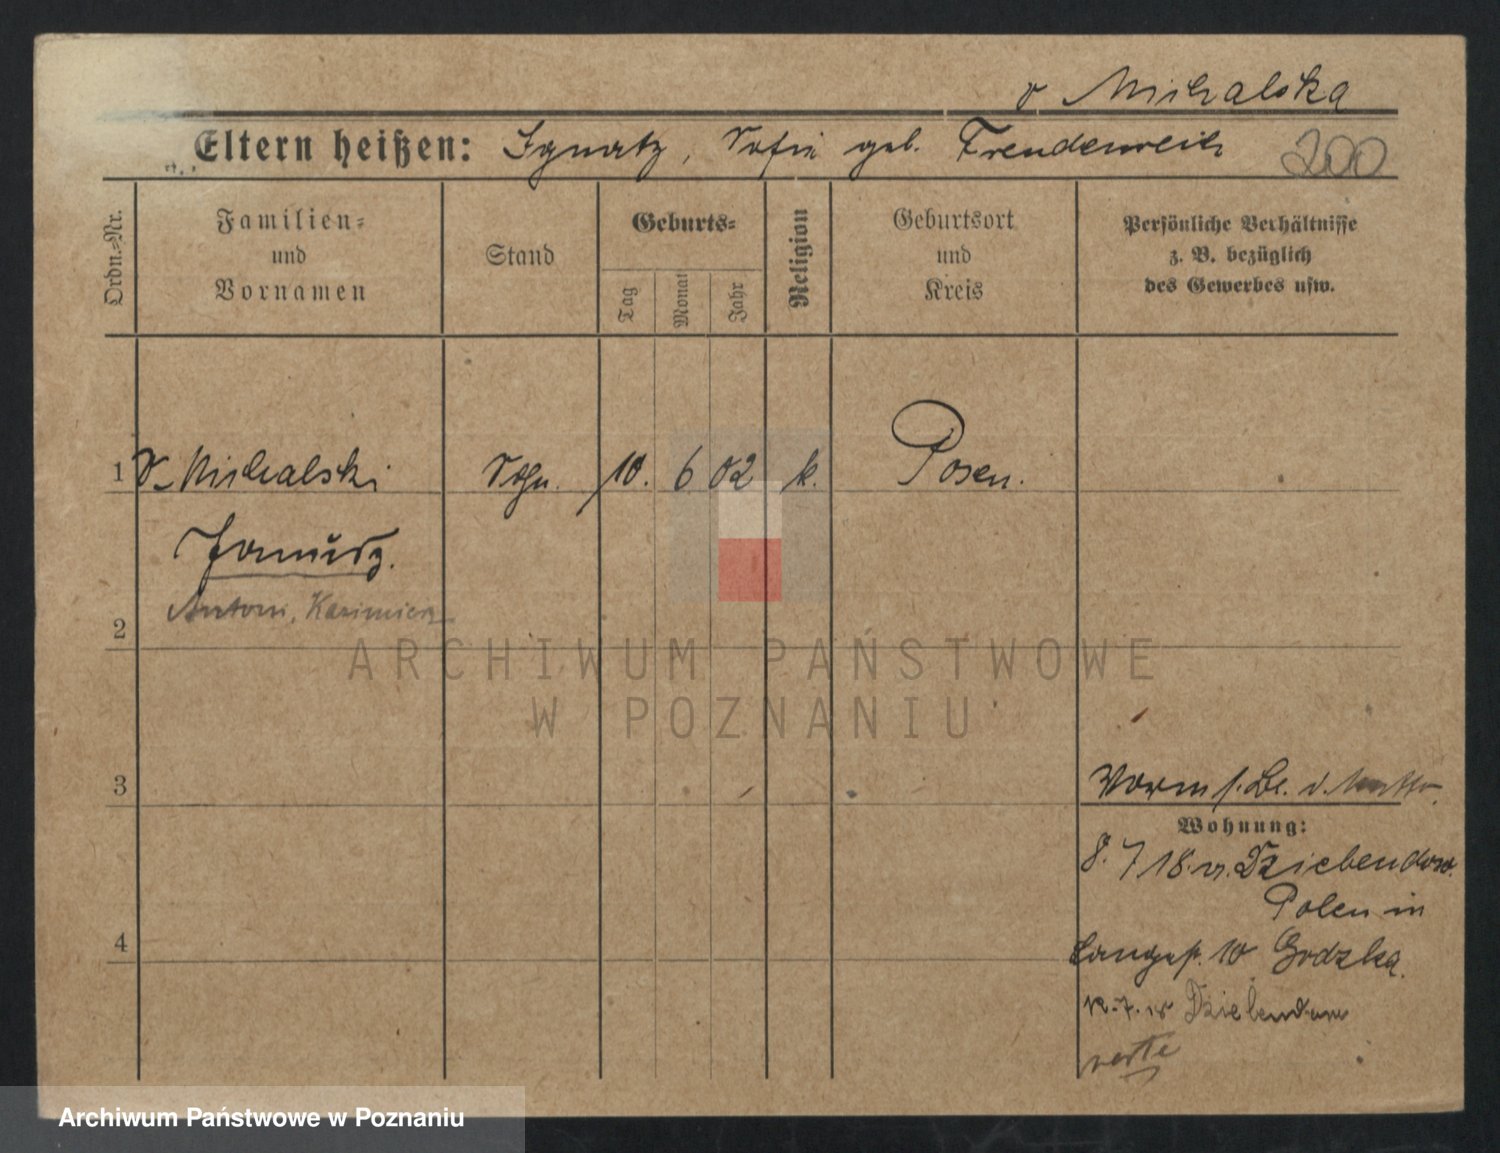 v Michalska
Eltern heißen: Ignatz, Sofie geb. Freudenreich
200
Ordn.-Nr.
Familien- und Vornamen
Stand
Geburts-
Tag
Monat
Jahr
Religion
Geburtsort und Kreis
Persönliche Verhältnisse z. B. bezüglich des Gewerbes usw.
1 v. Michalski Sohn. 10. 6 02 k. Posen.
Janusz.
Antoni, Kazimierz
2
ARCHIWUM PAŃSTWOWE
W POZNANIU
3
Vorm s. Be. d. Mutter
Wohnung:
8. 7 18. v. Dziebendow.
Polen in
Langest. 10 Godzka.
12.7.18 Dziebendow
verte
4
Archiwum Państwowe w Poznaniu